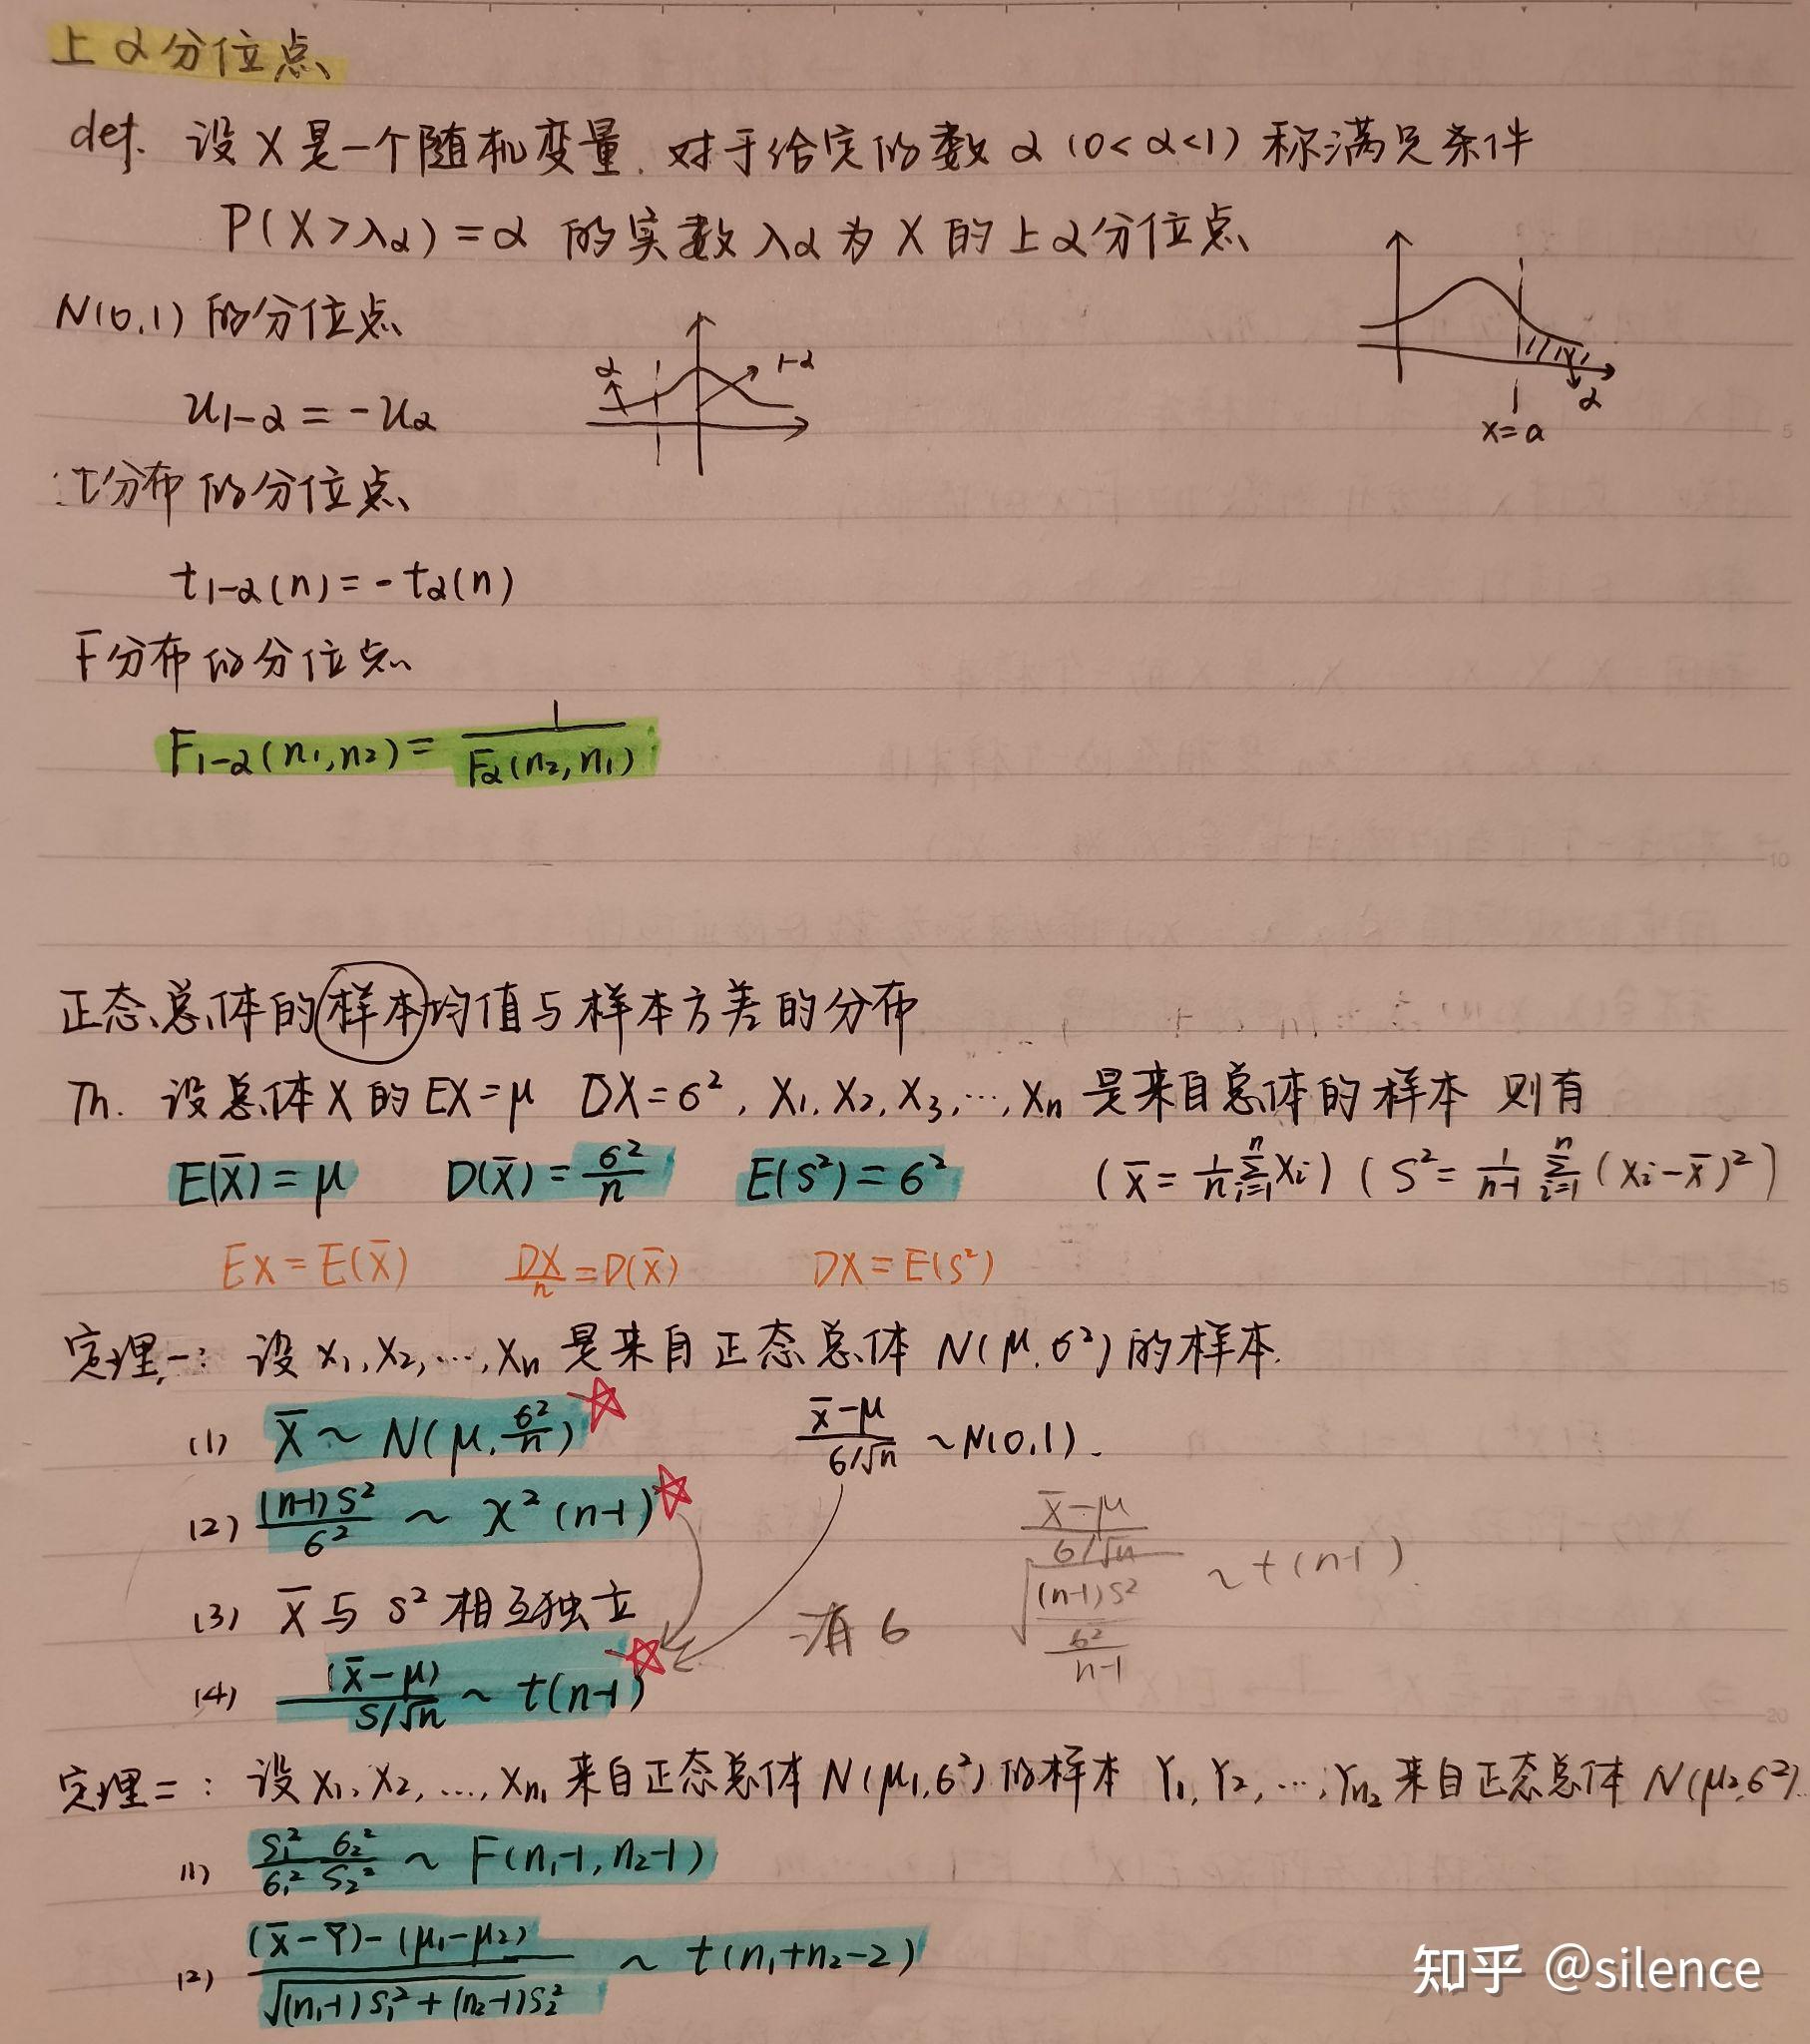 上α分位点
def. 设X是一个随机变量. 对于给定的数α (0<α<1) 称满足条件
P(X>λα)=α 的实数λα为X的上α分位点
N(0,1) 的分位点
α 1-α
α
x=a
u1-α = -uα
t分布的分位点
t1-α(n) = -tα(n)
F分布的分位点
F1-α(n1,n2) = 1/Fα(n2,n1)
正态总体的样本均值与样本方差的分布
Th. 设总体X的EX=μ DX=6², X1,X2,X3,…,Xn 是来自总体的样本 则有
E(X̄)=μ D(X̄)=6²/n E(S²)=6² (X̄=1/n Σⁿᵢ₌₁Xi) (S²=1/(n-1) Σⁿᵢ₌₁(Xi-X̄)²)
EX=E(X̄) DX/n=D(X̄) DX=E(S²)
定理一: 设X1,X2,…,Xn是来自正态总体 N(μ,6²)的样本.
(1) X̄~N(μ,6²/n) ☆ (X̄-μ)/(6/√n) ~N(0,1).
(2) (n-1)S²/6² ~ χ²(n-1) ☆
(X̄-μ)/(6/√n) / √((n-1)S²/6²/(n-1)) ~t(n-1).
(3) X̄与S²相互独立
消6
(4) (X̄-μ)/(S/√n) ~ t(n-1) ☆
定理二: 设X1,X2,…,Xn1来自正态总体N(μ1,6²)的样本 Y1,Y2,…,Yn2来自正态总体N(μ2,6²).
(1) S1²/61² 62²/S2² ~ F(n1-1,n2-1)
(2) (X̄-Ȳ)-(μ1-μ2) / √((n1-1)S1²+(n2-1)S2²) ~ t(n1+n2-2)
知乎 @silence